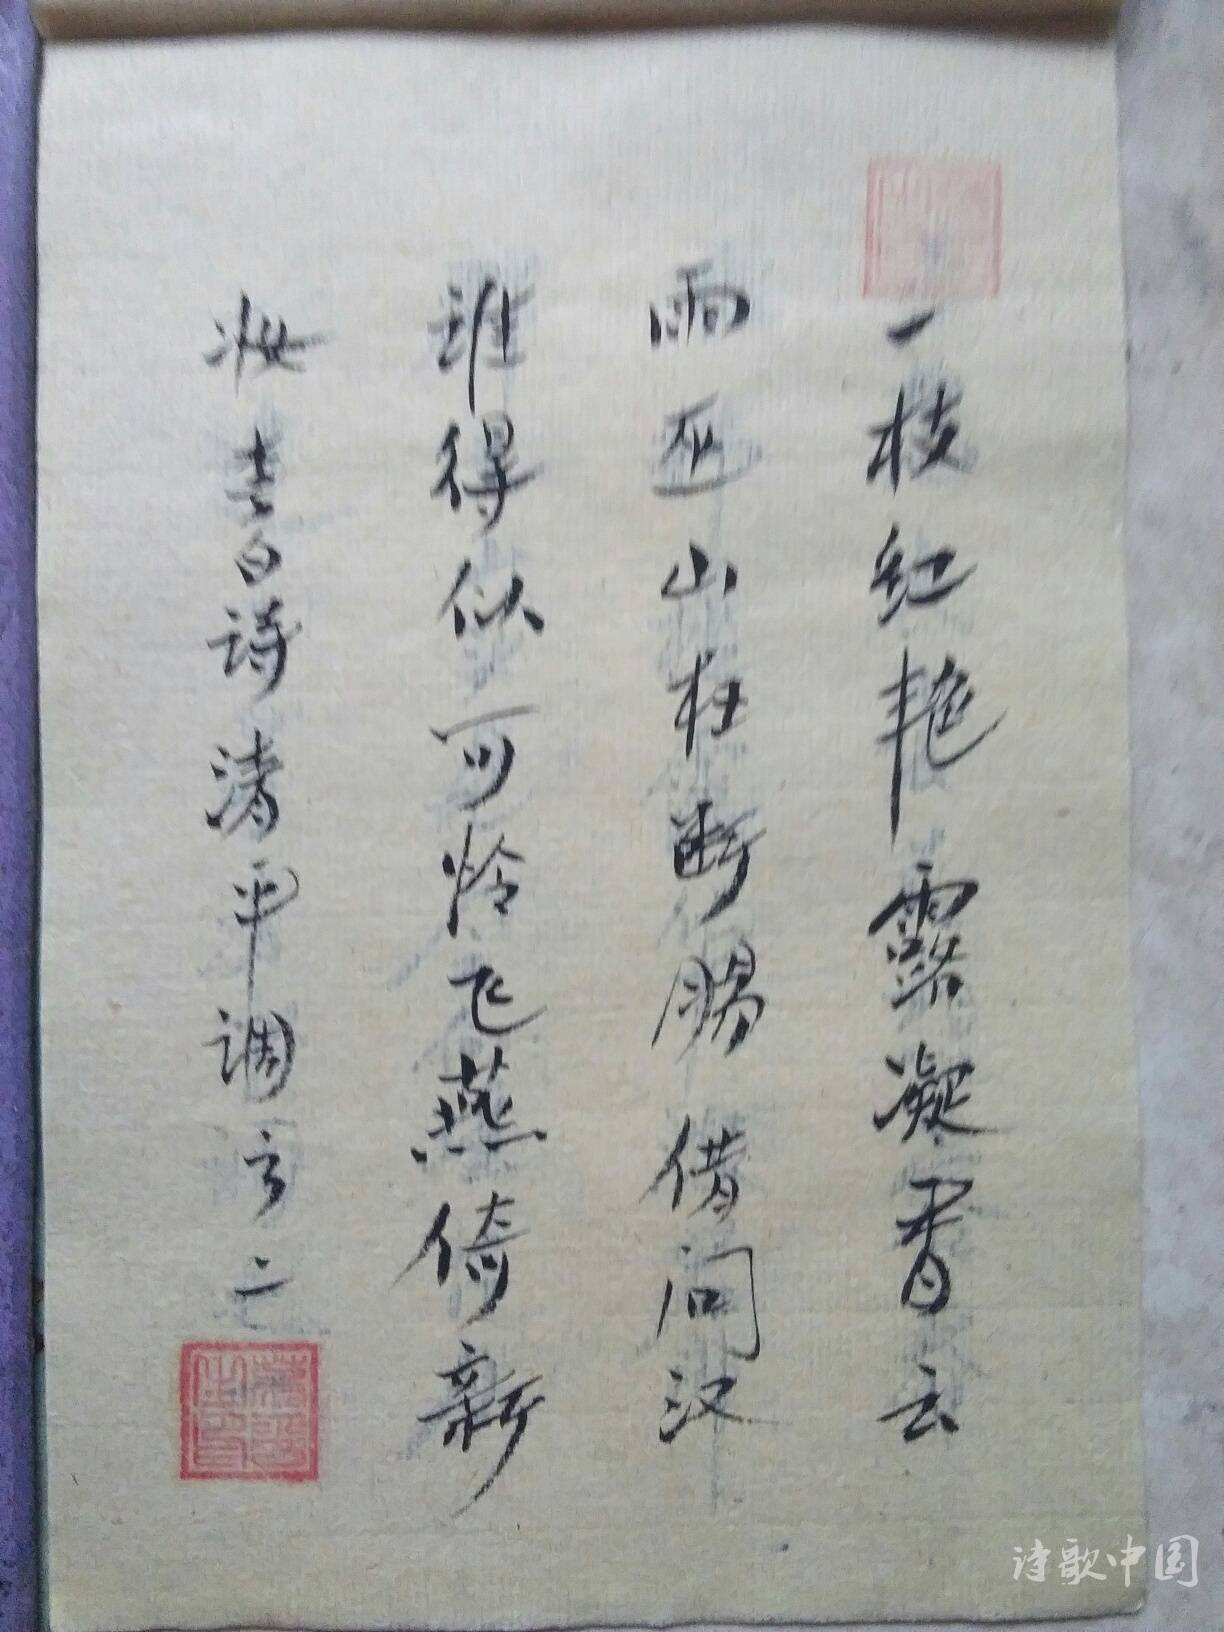 一枝红艳露凝香云
雨巫山枉断腸借问汉
谁得似可怜飞燕倚新
妆李白诗清平调之二
诗歌中国